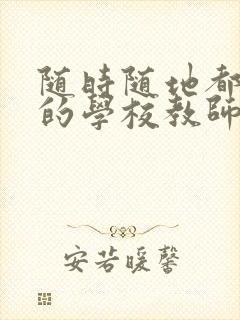 随時随地都
的學校教師
安若暖馨